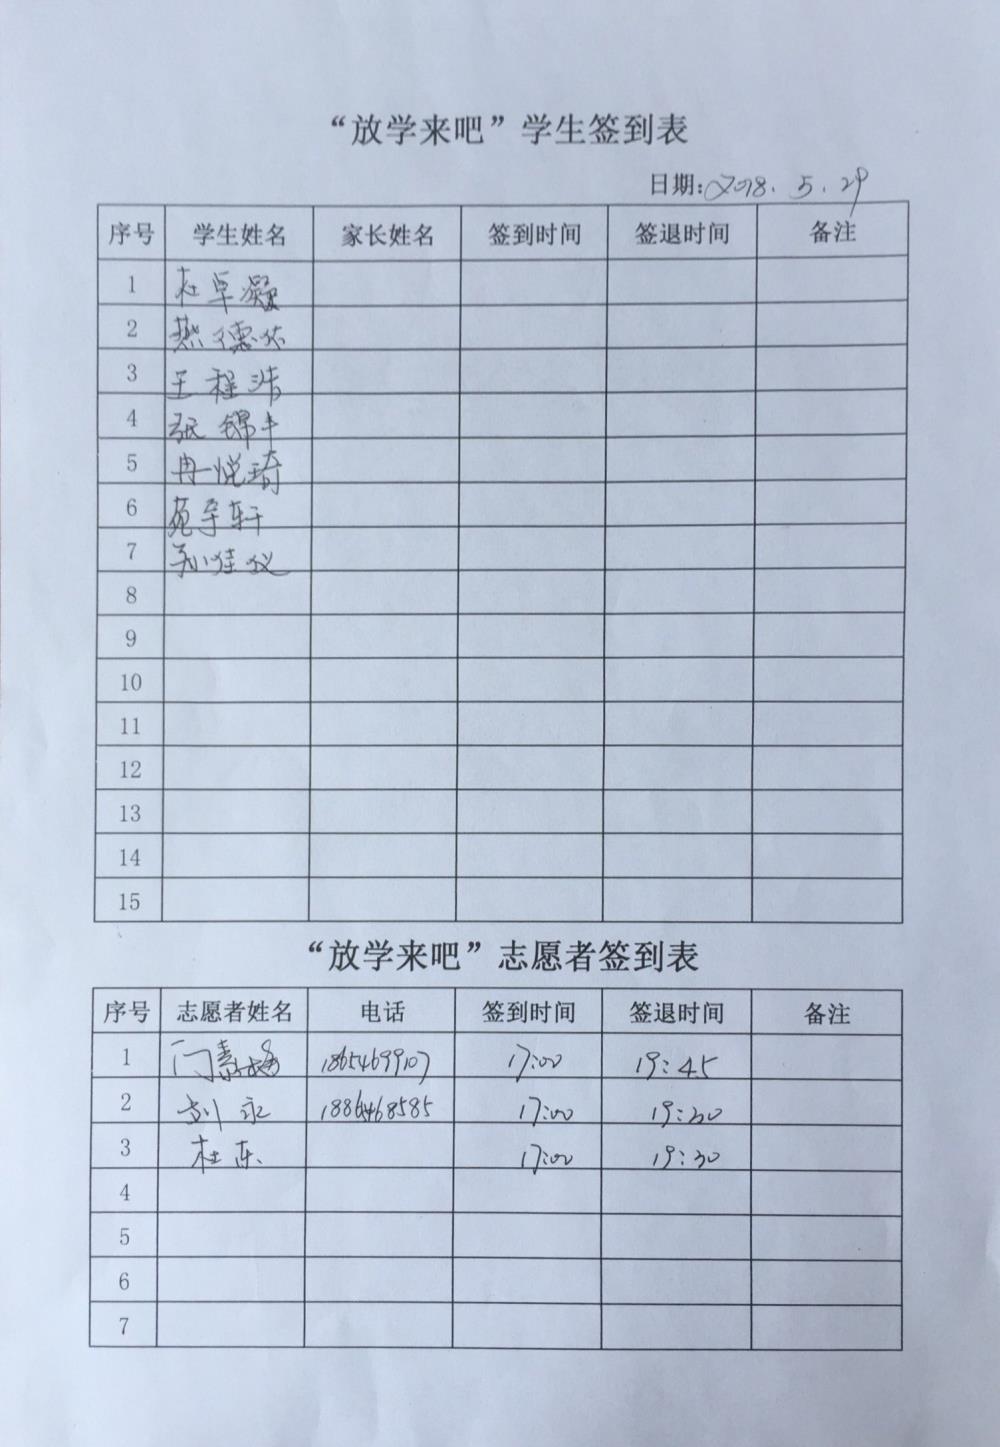 “放学来吧”学生签到表
日期: 2018. 5. 29
序号 学生姓名 家长姓名 签到时间 签退时间 备注
1 杜卓凝
2 燕德
3 王程浩
4 张锦丰
5 冉悦琦
6 苑宇轩
7 孙佳仪
8
9
10
11
12
13
14
15
“放学来吧”志愿者签到表
序号 志愿者姓名 电话 签到时间 签退时间 备注
1 门素梅 17:00 19:45
2 刘永 17:00 19:30
3 杜东 17:00 19:30
4
5
6
7